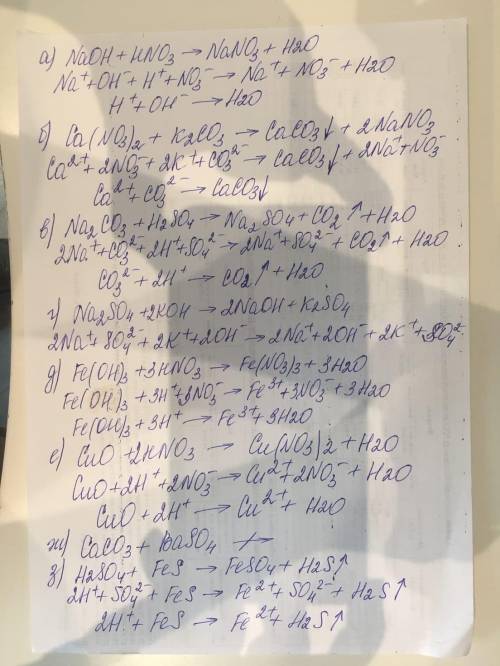 а) NaOH + HNO3 → NaNO3 + H2O
Na⁺ + OH⁻ + H⁺ + NO3⁻ → Na⁺ + NO3⁻ + H2O
H⁺ + OH⁻ → H2O
б) Ca(NO3)2 + K2CO3 → CaCO3↓ + 2NaNO3
Ca²⁺ + 2NO3⁻ + 2K⁺ + CO3²⁻ → CaCO3↓ + 2Na⁺ + NO3⁻
Ca²⁺ + CO3²⁻ → CaCO3↓
в) Na2CO3 + H2SO4 → Na2SO4 + CO2↑ + H2O
2Na⁺ + CO3²⁻ + 2H⁺ + SO4²⁻ → 2Na⁺ + SO4²⁻ + CO2↑ + H2O
CO3²⁻ + 2H⁺ → CO2↑ + H2O
г) Na2SO4 + 2KOH → 2NaOH + K2SO4
2Na⁺ + SO4²⁻ + 2K⁺ + 2OH⁻ → 2Na⁺ + 2OH⁻ + 2K⁺ + SO4²⁻
д) Fe(OH)3 + 3HNO3 → Fe(NO3)3 + 3H2O
Fe(OH)3 + 3H⁺ + 3NO3⁻ → Fe³⁺ + 3NO3⁻ + 3H2O
Fe(OH)3 + 3H⁺ → Fe³⁺ + 3H2O
е) CuO + 2HNO3 → Cu(NO3)2 + H2O
CuO + 2H⁺ + 2NO3⁻ → Cu²⁺ + 2NO3⁻ + H2O
CuO + 2H⁺ → Cu²⁺ + H2O
ж) CaCO3 + BaSO4 ↛
з) H2SO4 + FeS → FeSO4 + H2S↑
2H⁺ + SO4²⁻ + FeS → Fe²⁺ + SO4²⁻ + H2S↑
2H⁺ + FeS → Fe²⁺ + H2S↑